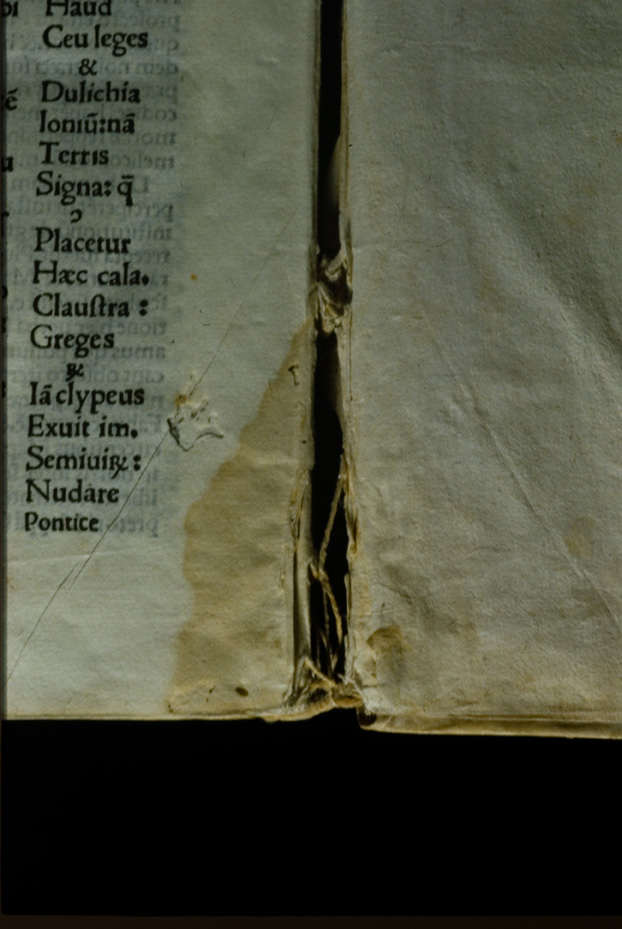 Haud
Ceu leges
&
Dulichia
Ioniū:nā
Terris
Signa: q̄
ɔ
Placetur
Hæc cala.
Clauſtra :
Greges
Iā clypeus
Exuit im.
Semiuiꝝ :
Nudare
Pontice